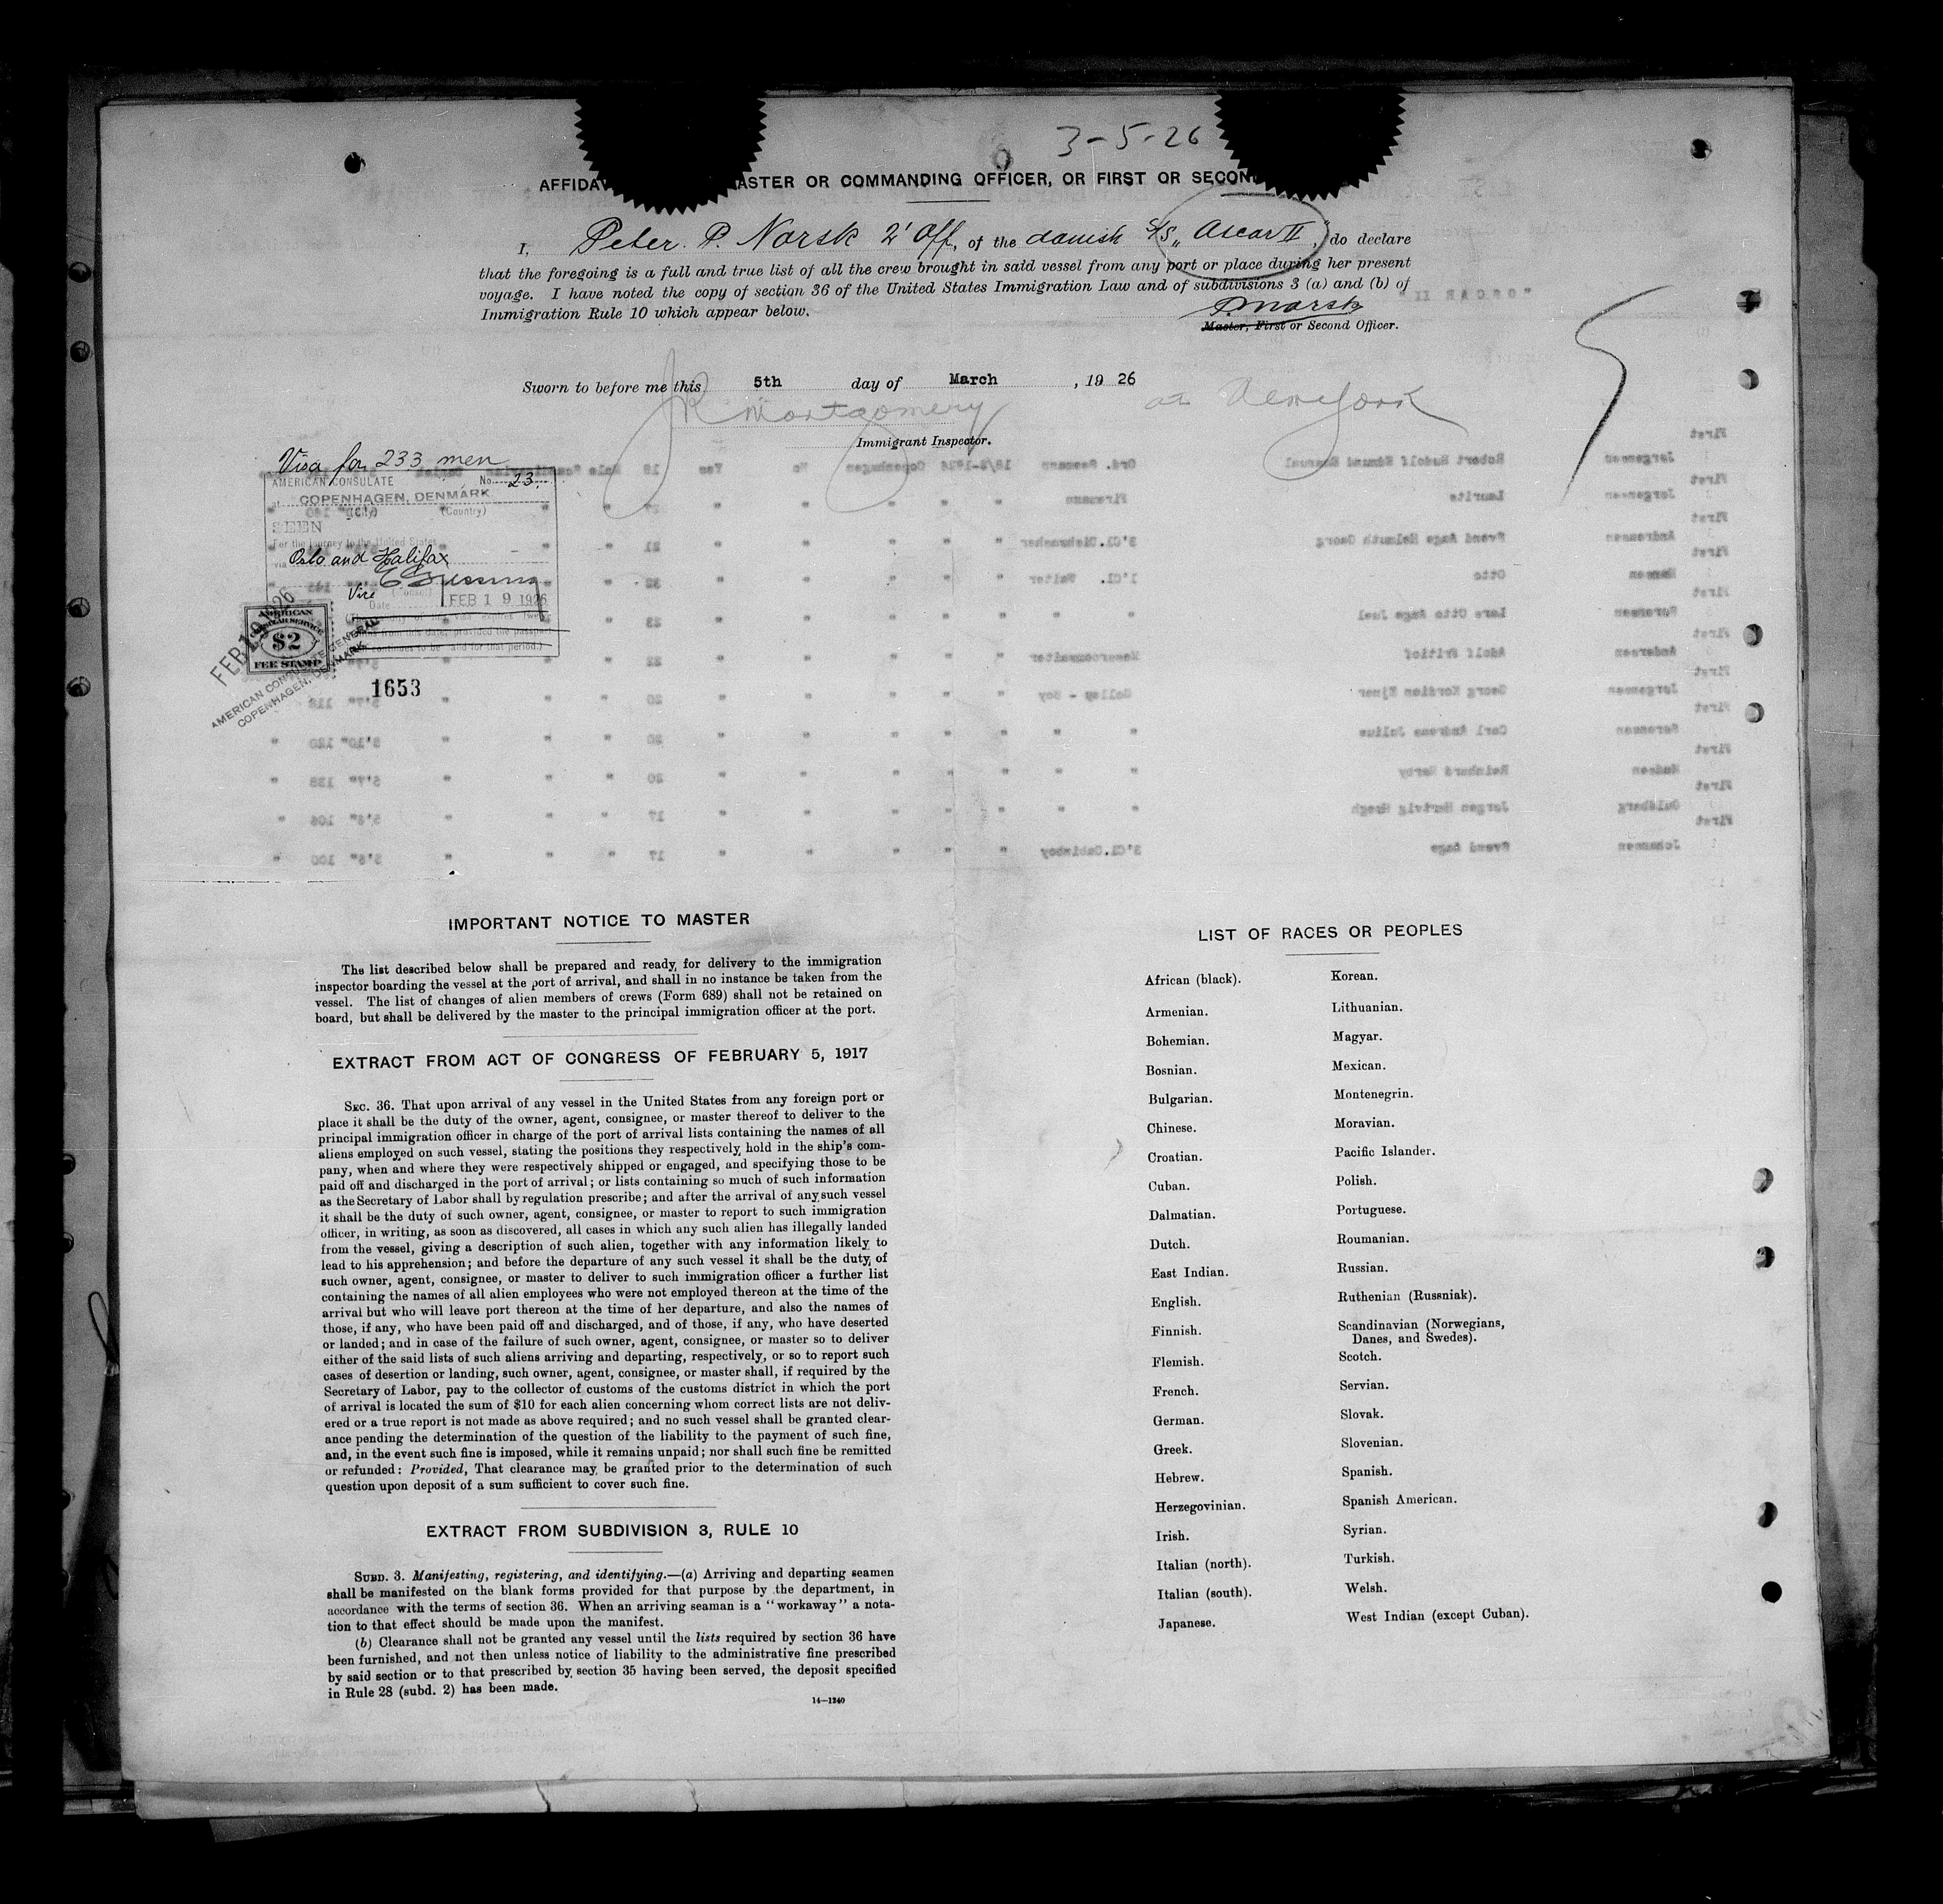 3-5-26
AFFIDAV ASTER OR COMMANDING OFFICER, OR FIRST OR SECON
I, Peter. P. Norsk 2' Off, of the danish S/S „Oscar II", do declare
that the foregoing is a full and true list of all the crew brought in said vessel from any port or place during her present
voyage. I have noted the copy of section 36 of the United States Immigration Law and of subdivisions 3 (a) and (b) of
Immigration Rule 10 which appear below.
P. Norsk
Master, First or Second Officer.
Sworn to before me this 5th day of March, 19 26
JR Montgomery at New York
Immigrant Inspector.
Visa for 233 men
AMERICAN CONSULATE No. 23.
at COPENHAGEN, DENMARK
(City) (Country)
SEEN
For the journey to the United States
via Oslo and Halifax
Vice (Consul)
Date FEB 19 1926
FEB 19 1926
AMERICAN
CONSULAR SERVICE
$2
FEE STAMP
AMERICAN CONSULATE GENERAL
COPENHAGEN, DENMARK
1653
IMPORTANT NOTICE TO MASTER
The list described below shall be prepared and ready, for delivery to the immigration
inspector boarding the vessel at the port of arrival, and shall in no instance be taken from the
vessel. The list of changes of alien members of crews (Form 689) shall not be retained on
board, but shall be delivered by the master to the principal immigration officer at the port.
EXTRACT FROM ACT OF CONGRESS OF FEBRUARY 5, 1917
SEC. 36. That upon arrival of any vessel in the United States from any foreign port or
place it shall be the duty of the owner, agent, consignee, or master thereof to deliver to the
principal immigration officer in charge of the port of arrival lists containing the names of all
aliens employed on such vessel, stating the positions they respectively hold in the ship's com-
pany, when and where they were respectively shipped or engaged, and specifying those to be
paid off and discharged in the port of arrival; or lists containing so much of such information
as the Secretary of Labor shall by regulation prescribe; and after the arrival of any such vessel
it shall be the duty of such owner, agent, consignee, or master to report to such immigration
officer, in writing, as soon as discovered, all cases in which any such alien has illegally landed
from the vessel, giving a description of such alien, together with any information likely to
lead to his apprehension; and before the departure of any such vessel it shall be the duty of
such owner, agent, consignee, or master to deliver to such immigration officer a further list
containing the names of all alien employees who were not employed thereon at the time of the
arrival but who will leave port thereon at the time of her departure, and also the names of
those, if any, who have been paid off and discharged, and of those, if any, who have deserted
or landed; and in case of the failure of such owner, agent, consignee, or master so to deliver
either of the said lists of such aliens arriving and departing, respectively, or so to report such
cases of desertion or landing, such owner, agent, consignee, or master shall, if required by the
Secretary of Labor, pay to the collector of customs of the customs district in which the port
of arrival is located the sum of $10 for each alien concerning whom correct lists are not deliv-
ered or a true report is not made as above required; and no such vessel shall be granted clear-
ance pending the determination of the question of the liability to the payment of such fine,
and, in the event such fine is imposed, while it remains unpaid; nor shall such fine be remitted
or refunded: Provided, That clearance may be granted prior to the determination of such
question upon deposit of a sum sufficient to cover such fine.
EXTRACT FROM SUBDIVISION 3, RULE 10
SUBD. 3. Manifesting, registering, and identifying.—(a) Arriving and departing seamen
shall be manifested on the blank forms provided for that purpose by the department, in
accordance with the terms of section 36. When an arriving seaman is a "workaway" a nota-
tion to that effect should be made upon the manifest.
(b) Clearance shall not be granted any vessel until the lists required by section 36 have
been furnished, and not then unless notice of liability to the administrative fine prescribed
by said section or to that prescribed by section 35 having been served, the deposit specified
in Rule 28 (subd. 2) has been made.
14—1240
LIST OF RACES OR PEOPLES
African (black).
Armenian.
Bohemian.
Bosnian.
Bulgarian.
Chinese.
Croatian.
Cuban.
Dalmatian.
Dutch.
East Indian.
English.
Finnish.
Flemish.
French.
German.
Greek.
Hebrew.
Herzegovinian.
Irish.
Italian (north).
Italian (south).
Japanese.
Korean.
Lithuanian.
Magyar.
Mexican.
Montenegrin.
Moravian.
Pacific Islander.
Polish.
Portuguese.
Roumanian.
Russian.
Ruthenian (Russniak).
Scandinavian (Norwegians,
Danes, and Swedes).
Scotch.
Servian.
Slovak.
Slovenian.
Spanish.
Spanish American.
Syrian.
Turkish.
Welsh.
West Indian (except Cuban).